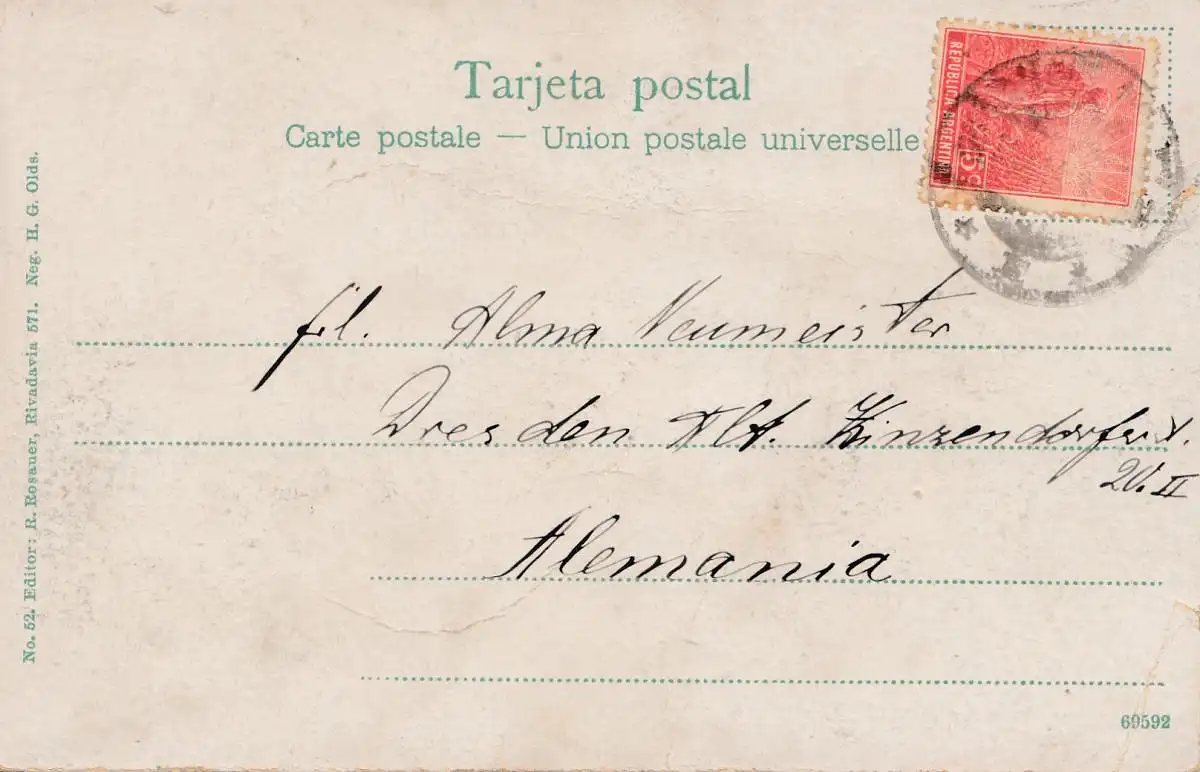 Tarjeta postal
Carte postale — Union postale universelle
REPUBLICA ARGENTINA
5c
frl. Alma Neumeister
Dresden Alt. Zinzendorferst.
20. II
Alemania
69592
No. 52. Editor: R. Rosauer, Rivadavia 571. Neg. H. G. Olds.